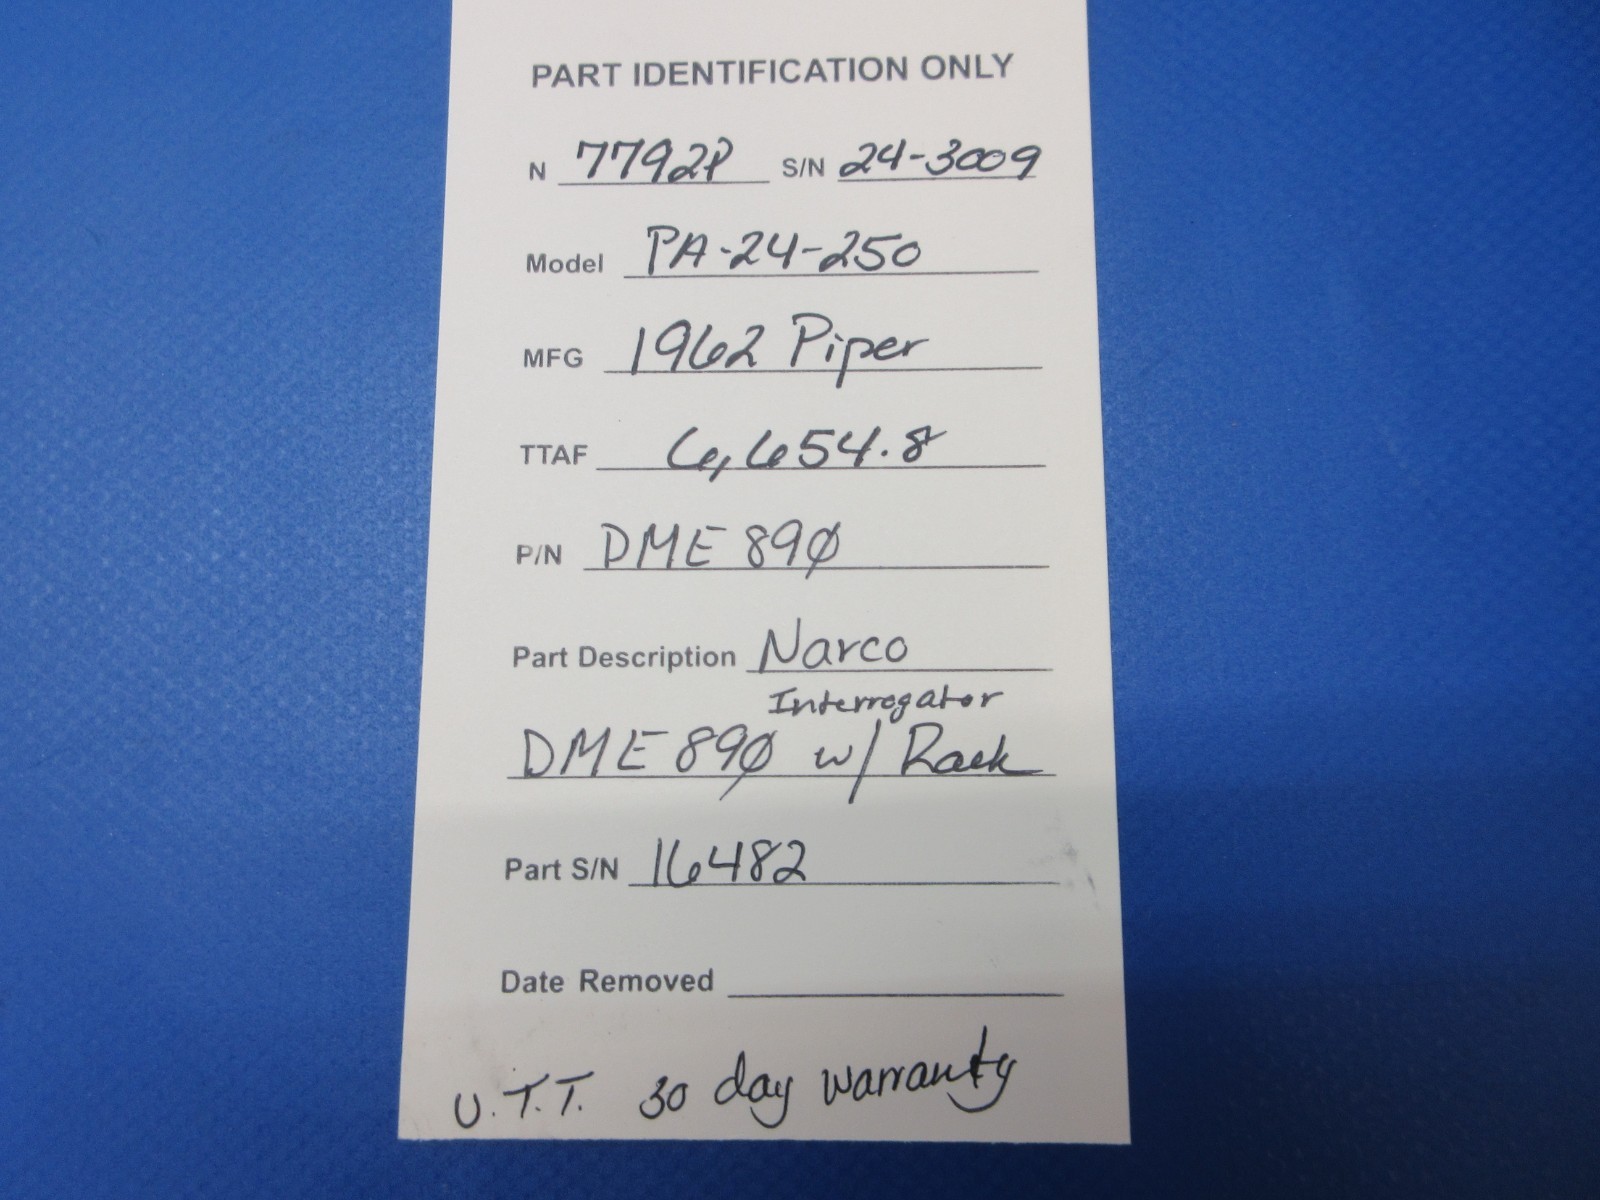 PART IDENTIFICATION ONLY
N 7792P S/N 24-3009
Model PA-24-250
MFG 1962 Piper
TTAF 6,654.8
P/N DME 89Ø
Part Description Narco
Interrogator
DME 89Ø w/ Rack
Part S/N 16482
Date Removed
U.T.T. 30 day warranty